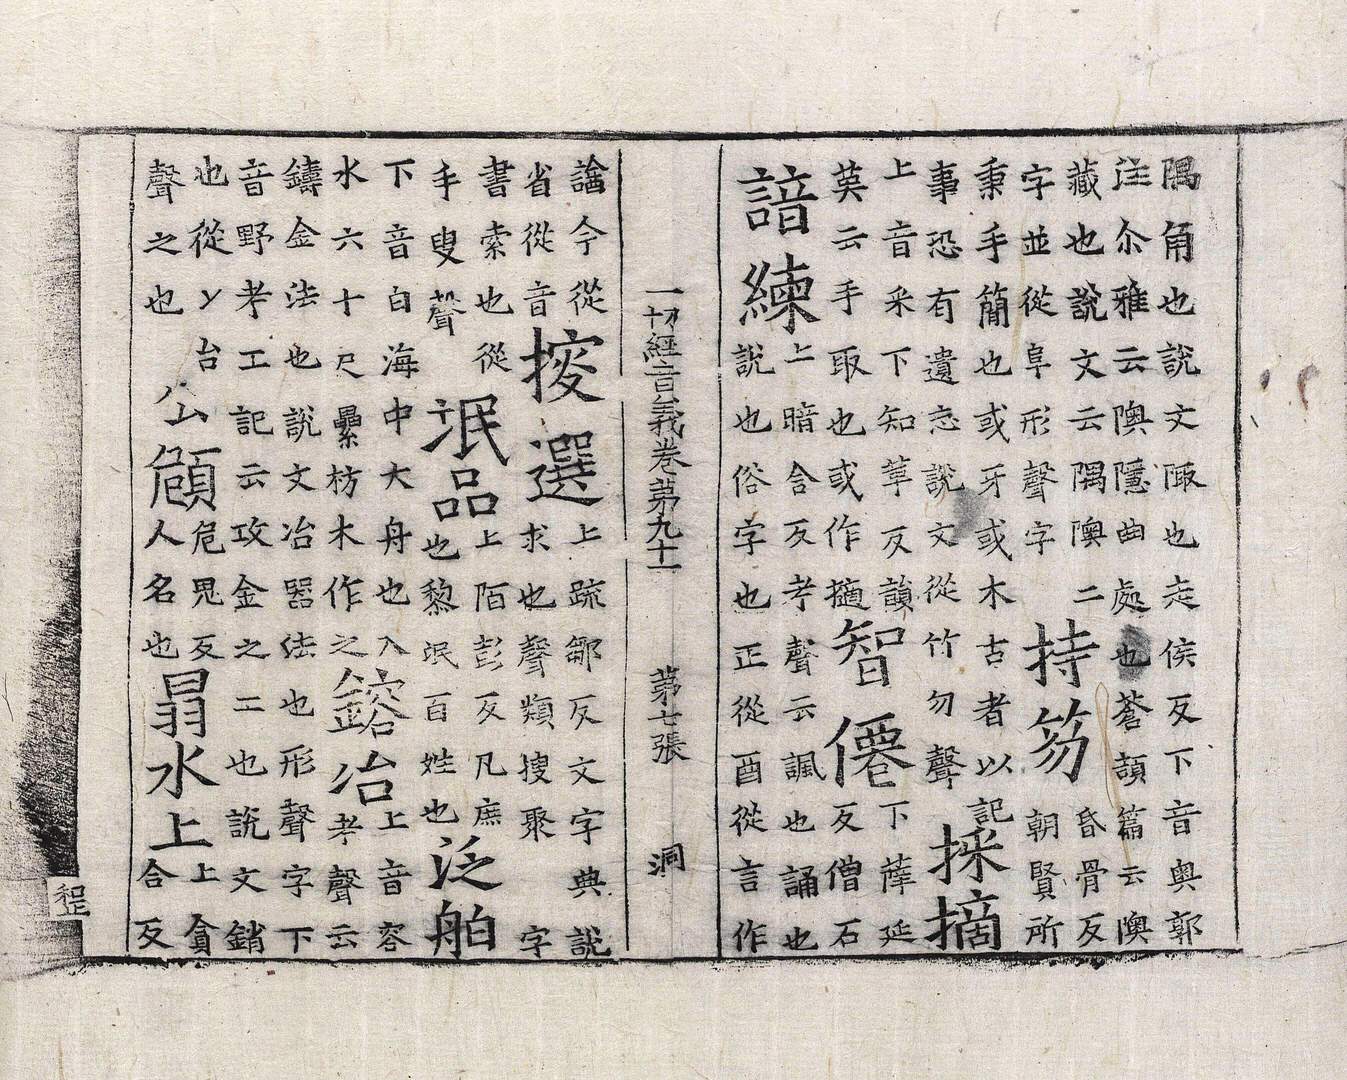 隅角也說文陬也走侯反下音奥郭
注尒雅云隩隱曲處也蒼頡篇云隩
藏也說文云隅隩二
字並從阜形聲字
持笏
昬骨反
朝賢所
秉手簡也或牙或木古者以記
事恐有遺忘說文從竹勿聲
採摘
上音采下知革反韻
英云手取也或作擿
智僊
下薩延
反僧石
諳練
上暗含反考聲云諷也誦也
說也俗字也正從酉從言作
一切經音義卷第九十一 第七張 洞
今從
省從音
捘選
上䟽鄒反文字典說
求也聲類搜聚字
書索也從
手叟聲
氓品
上陌彭反凡庶
也黎氓百姓也
泛舶
下音白海中大舟也入
水六十尺纍枋木作之
鎔冶
上音容
考聲云
鑄金法也說文冶器法也形聲字下
音野考工記云攻金之二也說文銷
也從冫台
聲之也
頠
危鬼反
人名也
㬎水上
上貪
合反